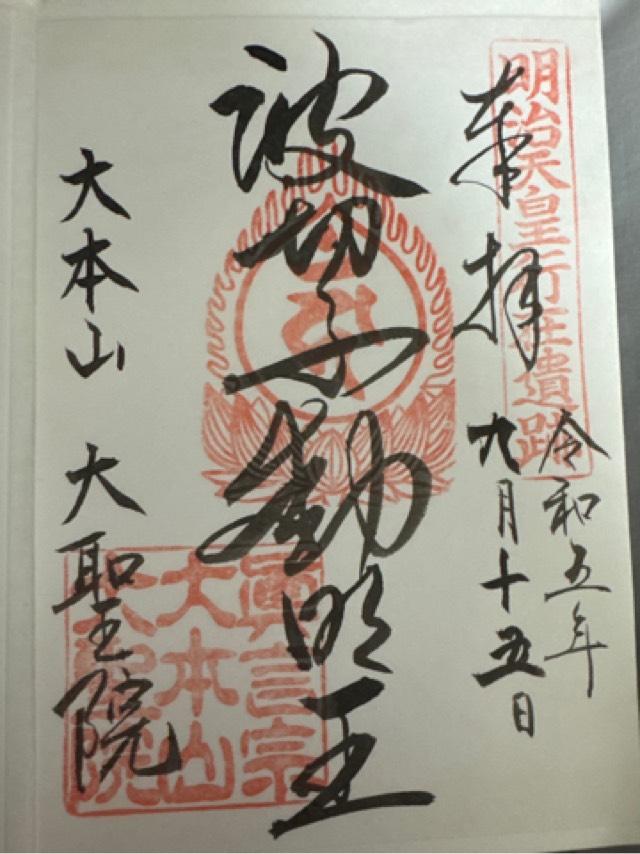 明治天皇行在遺跡
奉拝
令和五年
九月十五日
波切不動明王
大本山 大聖院
眞言宗
大本山
大聖院